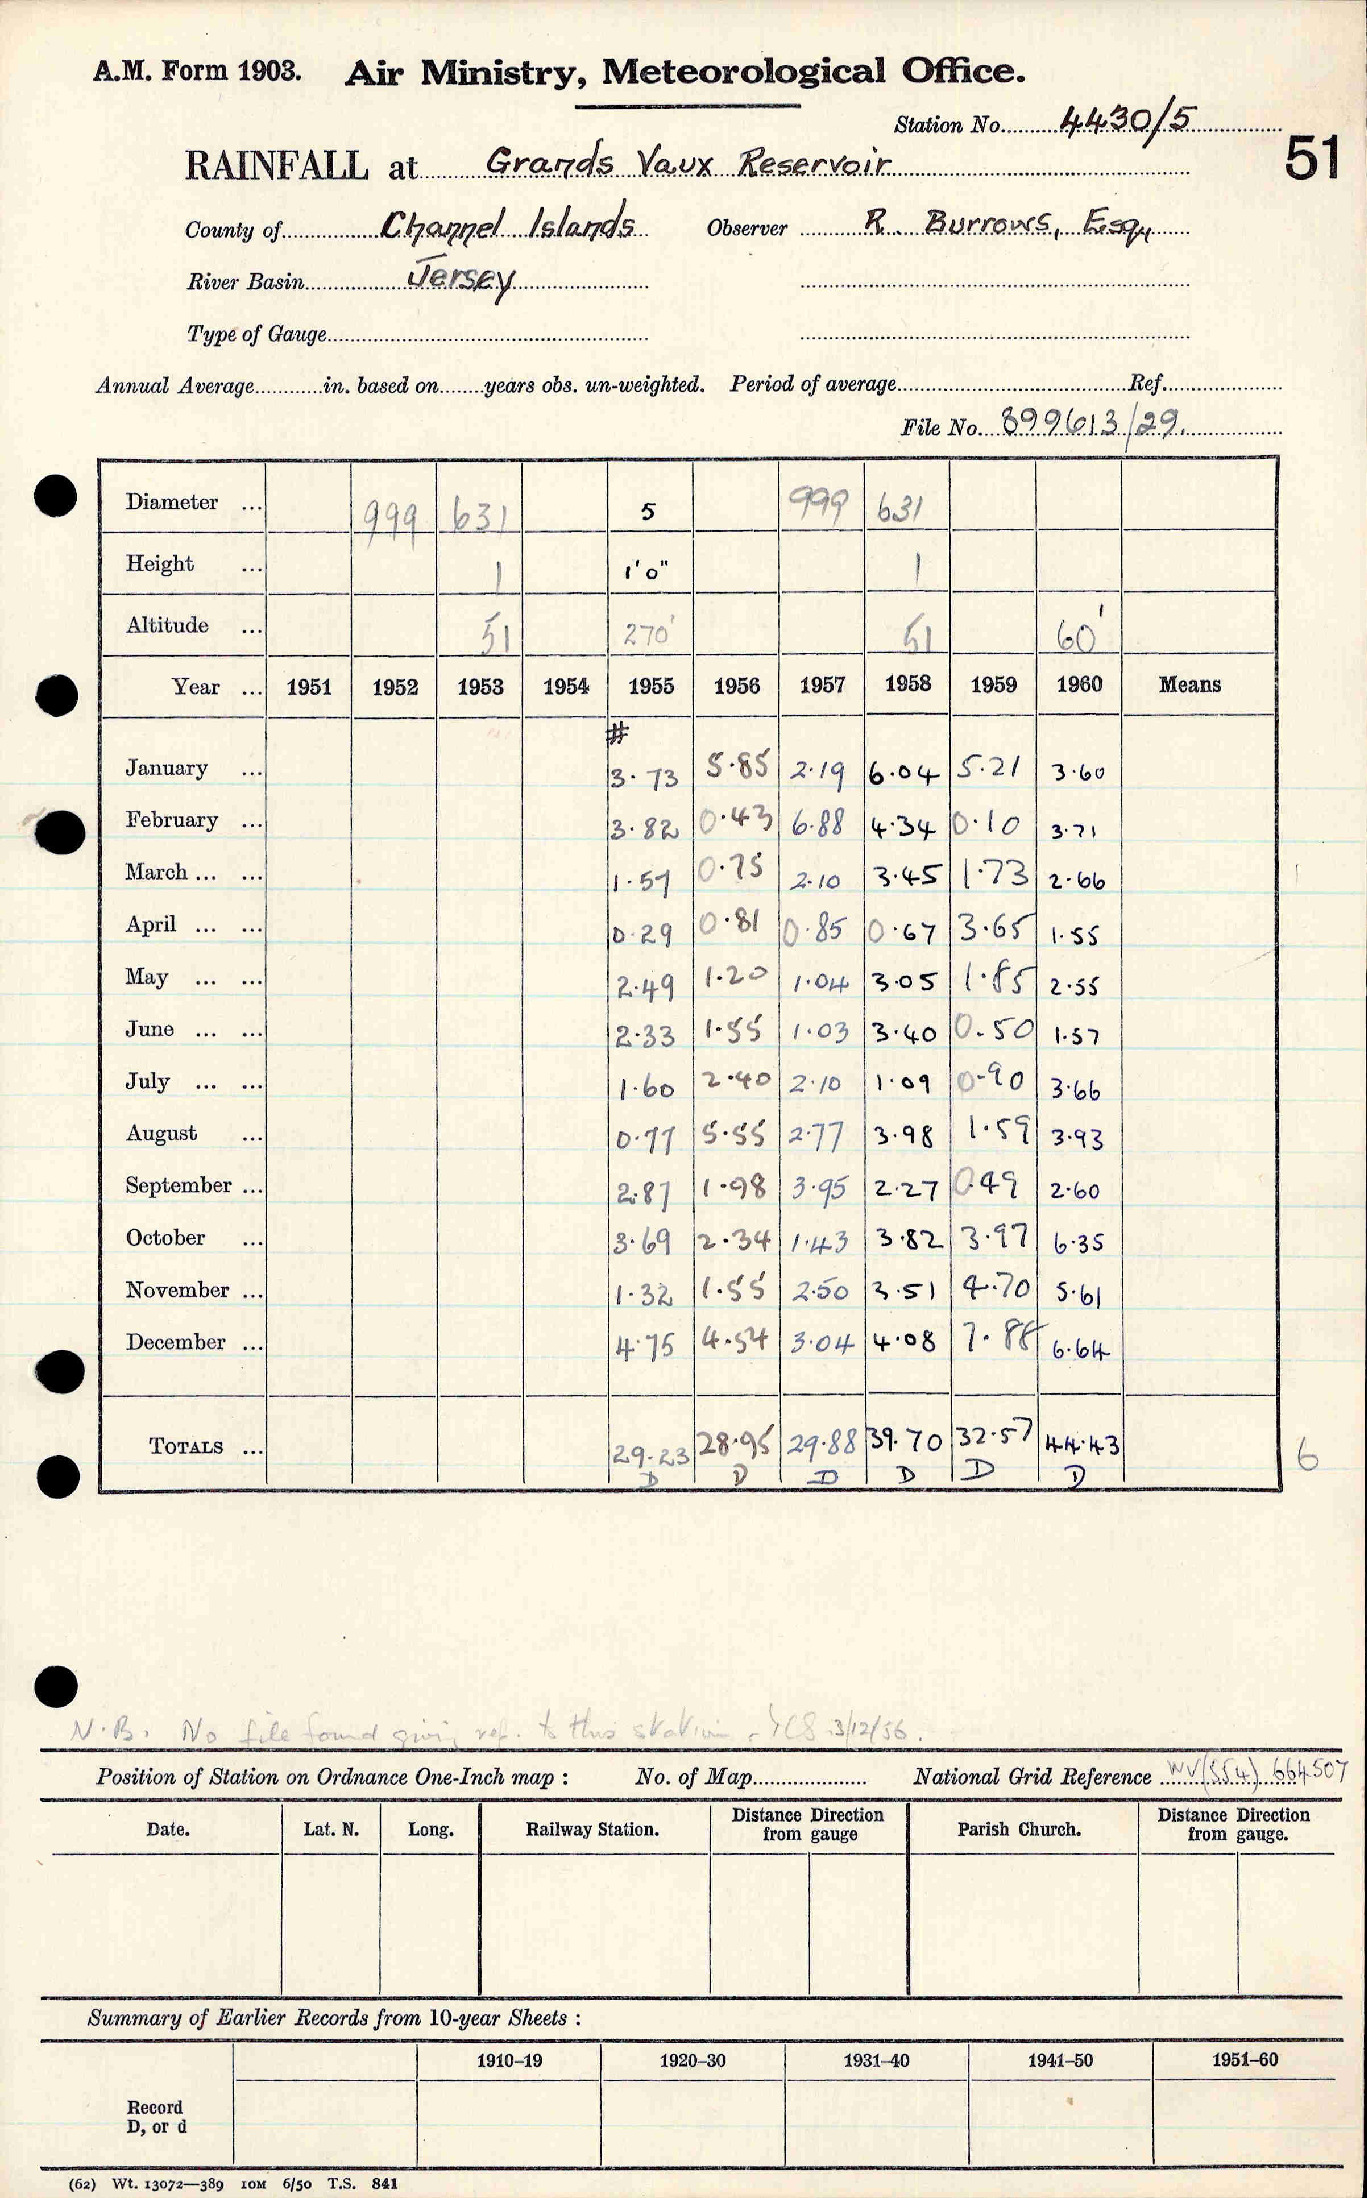 A.M. Form 1903. Air Ministry, Meteorological Office.
Station No. 4430/5
51
RAINFALL at Grands Vaux Reservoir
County of Channel Islands Observer R. Burrows, Esq,
River Basin Jersey
Type of Gauge
Annual Average in. based on years obs. un-weighted. Period of average Ref.
File No. 899613/29.
Diameter ... 999 631 5 999 631
Height ... 1 1'0" 1
Altitude ... 51 270' 51 60'
Year ... 1951 1952 1953 1954 1955 1956 1957 1958 1959 1960 Means
#
January ... 3.73 5.85 2.19 6.04 5.21 3.60
February ... 3.82 0.43 6.88 4.34 0.10 3.71
March ... ... 1.57 0.75 2.10 3.45 1.73 2.66
April ... ... 0.29 0.81 0.85 0.67 3.65 1.55
May ... ... 2.49 1.20 1.04 3.05 1.85 2.55
June ... ... 2.33 1.55 1.03 3.40 0.50 1.57
July ... ... 1.60 2.40 2.10 1.09 0.90 3.66
August ... 0.77 5.55 2.77 3.98 1.59 3.93
September ... 2.87 1.98 3.95 2.27 0.49 2.60
October ... 3.69 2.34 1.43 3.82 3.97 6.35
November ... 1.32 1.55 2.50 3.51 4.70 5.61
December ... 4.75 4.54 3.04 4.08 7.88 6.64
TOTALS ... 29.23 28.95 29.88 39.70 32.57 44.43 6
D D D D D D
N.B. No file found giving ref. to this station - 3/12/56.
Position of Station on Ordnance One-Inch map : No. of Map National Grid Reference WV(554) 664507
Date. Lat. N. Long. Railway Station. Distance Direction from gauge Parish Church. Distance Direction from gauge.
Summary of Earlier Records from 10-year Sheets :
1910–19 1920–30 1931–40 1941–50 1951–60
Record
D, or d
(62) Wt. 13072—389 10M 6/50 T.S. 841